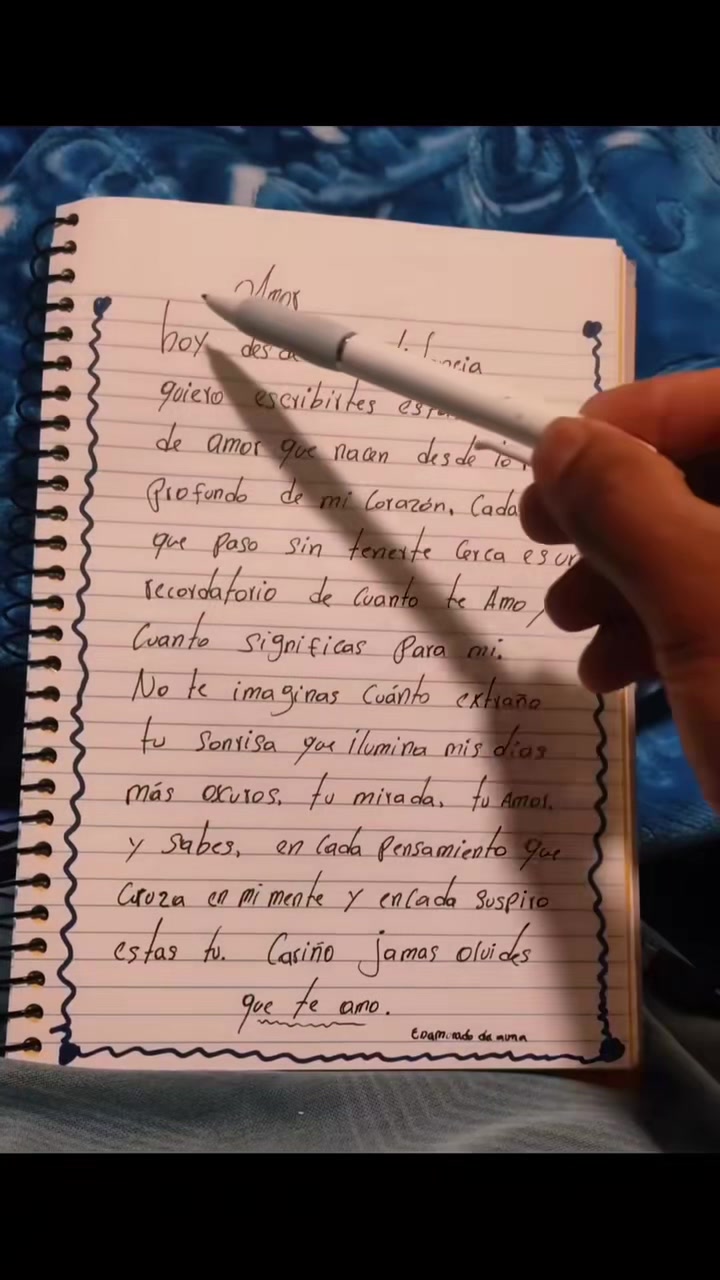 Amor
hoy
quiero escribirtes
de amor que nacen desde lo
profundo de mi Corazón. Cada
que paso sin tenerte Cerca es un
recordatorio de Cuanto te Amo y
Cuanto significas para mi.
No te imaginas Cuánto extraño
tu sonrisa que ilumina mis días
más oscuros, tu mirada, tu Amor.
y sabes, en Cada pensamiento que
Cruza en mi mente y en Cada suspiro
estas tu. Cariño jamas olvides
que te amo.